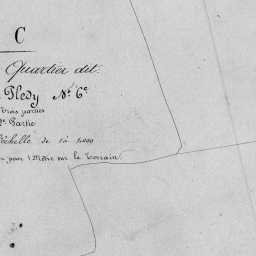 C
Quartier dit.
Pledy N° 6e
trois parties
Partie
l'échelle de 1 à 1000
pour 1 Mètre sur le terrain.